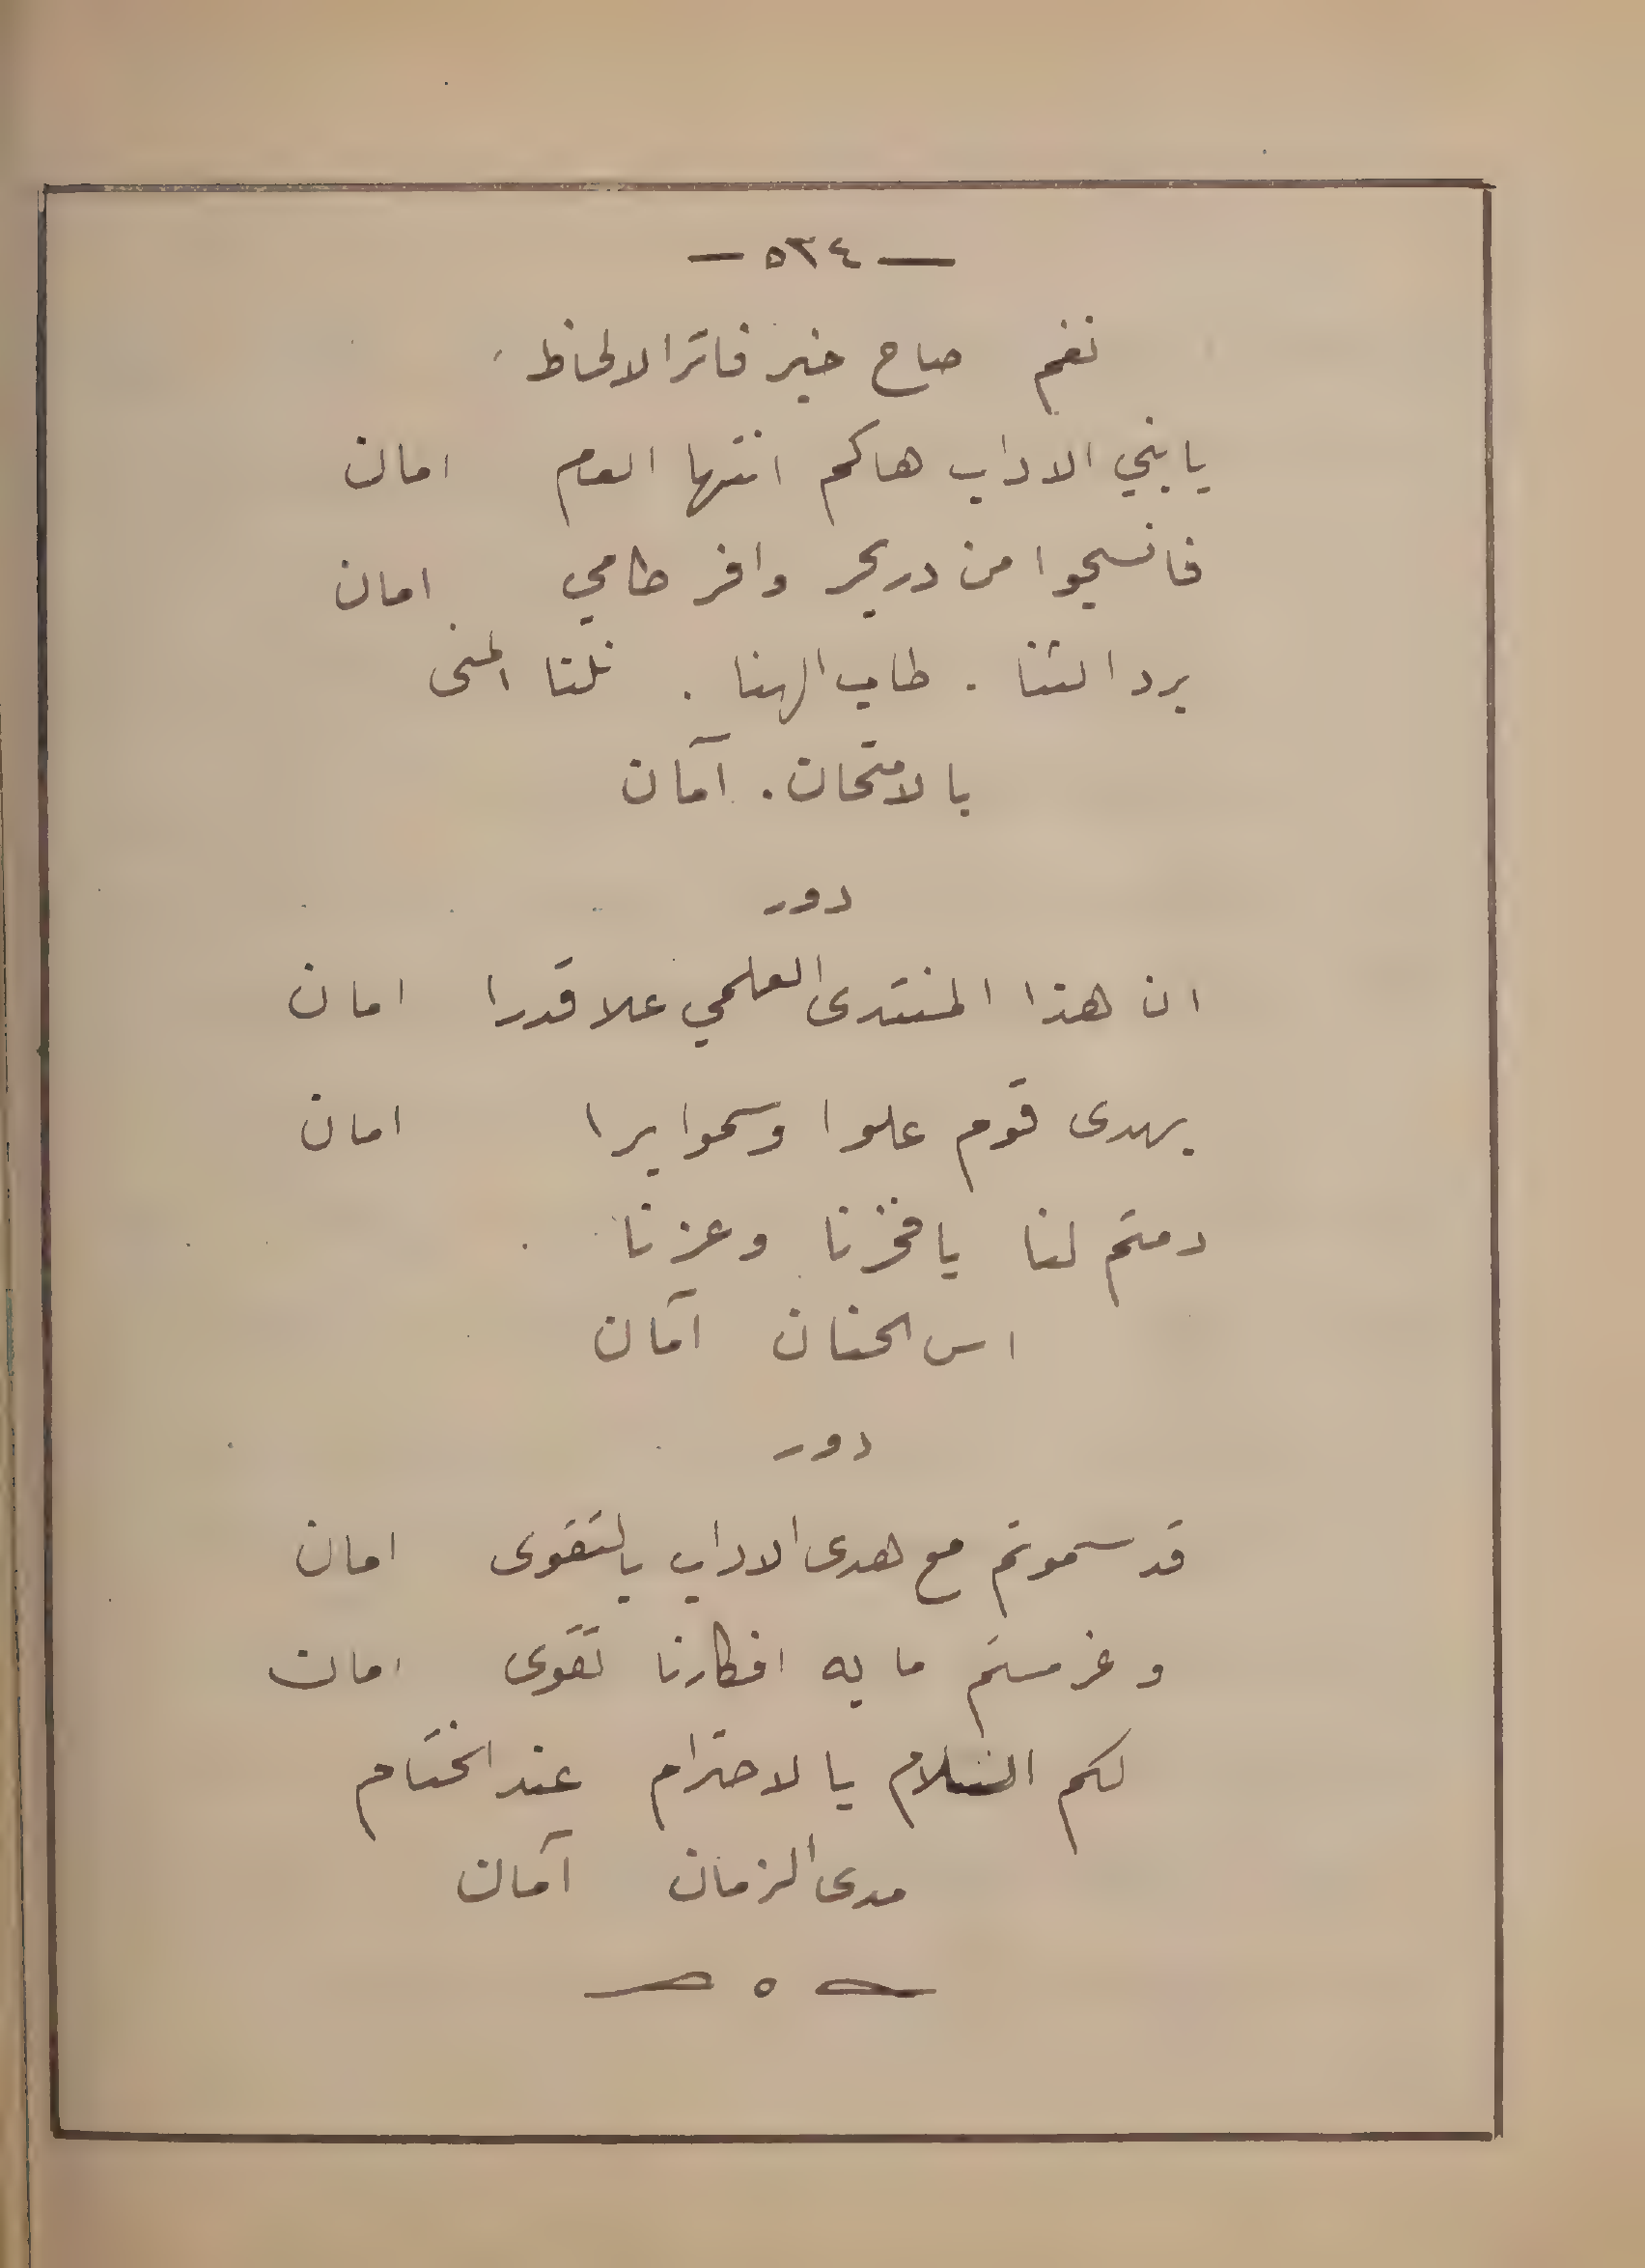 — ٥٣٤ —
نغم صاح خبر فاتر الالحاظ
يا بني الاداب هاكم انتها العام امان
فانسجوا من در بحر وافر طامي امان
برد الثنا . طاب الهنا . نلنا المنى
بالامتحان . آمان
دور
ان هذا المنتدى العلمي علا قدرا امان
بهدى قوم علوا وسموا برا امان
دمتم لنا يا فخرنا وعزنا
اس الحنان آمان
دور
قد سموتم مع هدى الاداب بالتقوى امان
وغرستم ما به افكارنا تقوى امان
لكم السلام بالاحترام عند الختام
مدى الزمان آمان